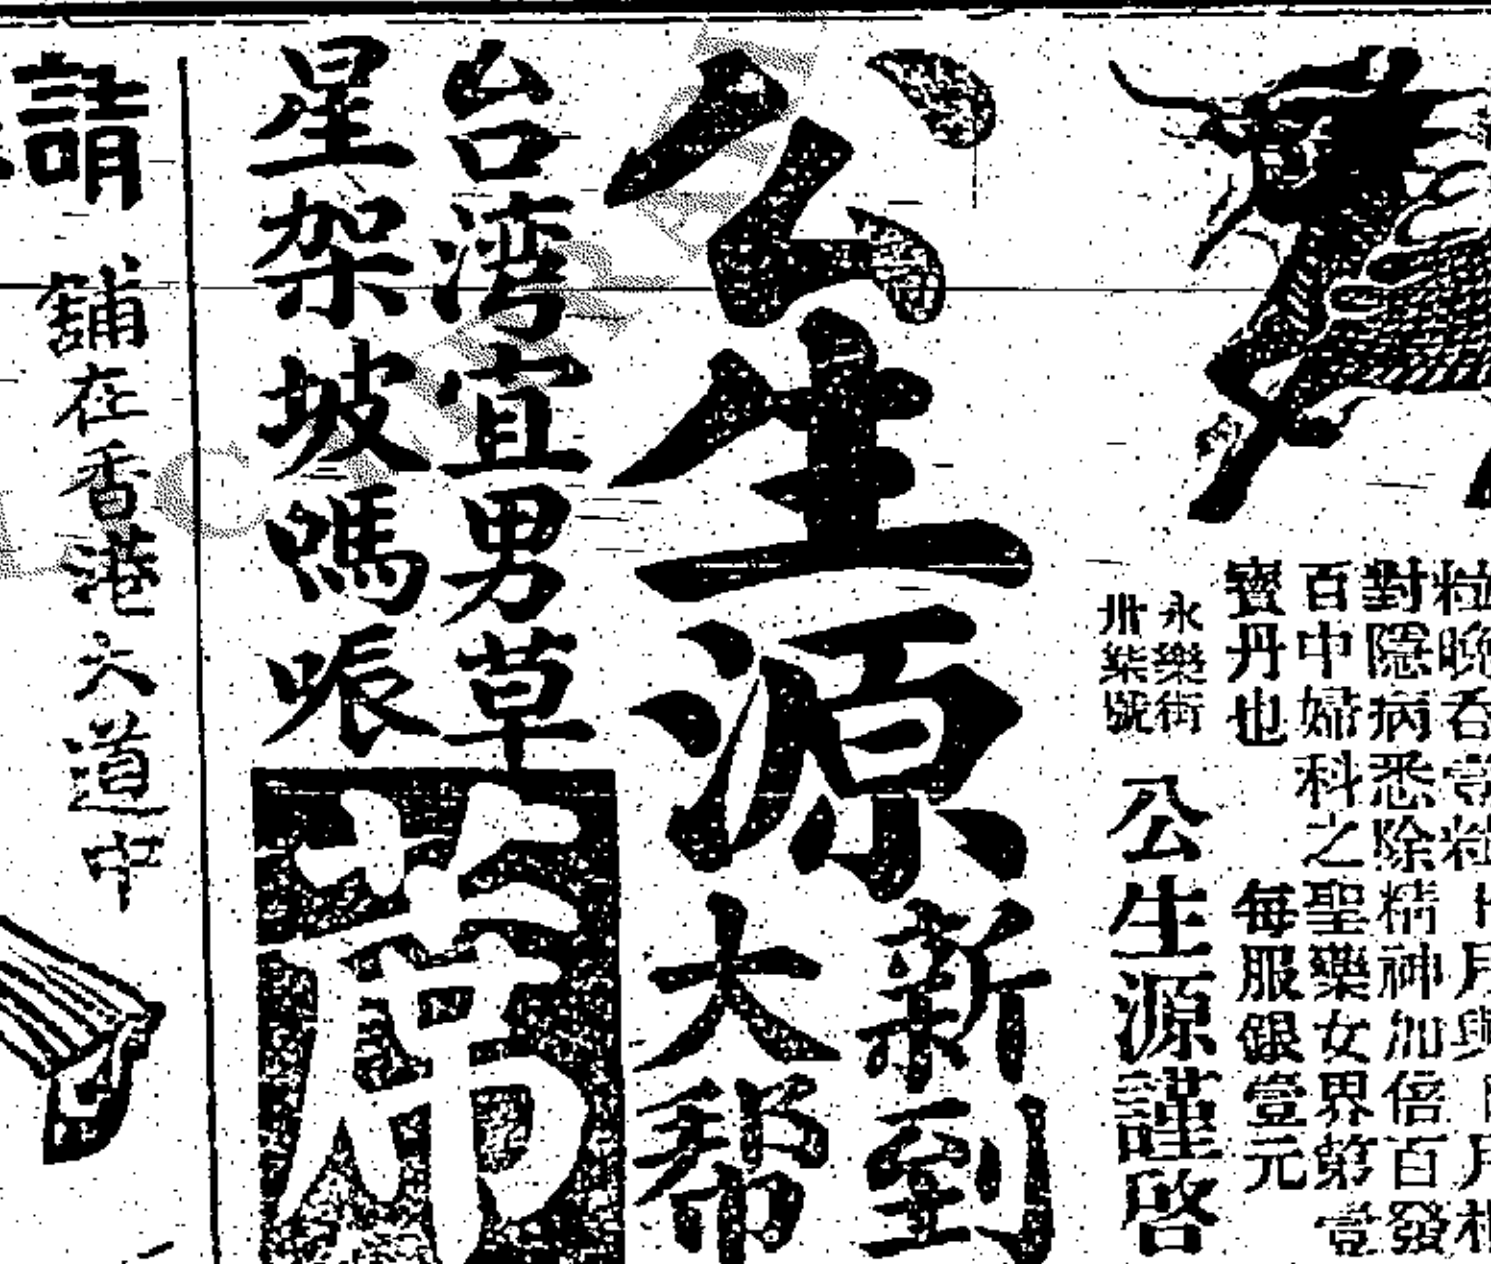 對隱病悉除精神加倍百發
百中婦科之聖藥女界第壹
寶丹也 每服銀壹元
永樂街
卅柒號
公生源謹啓
公生源
新到
大帮
台湾宜男草
星架坡嗎㖘
蓆
請
舖在香港大道中